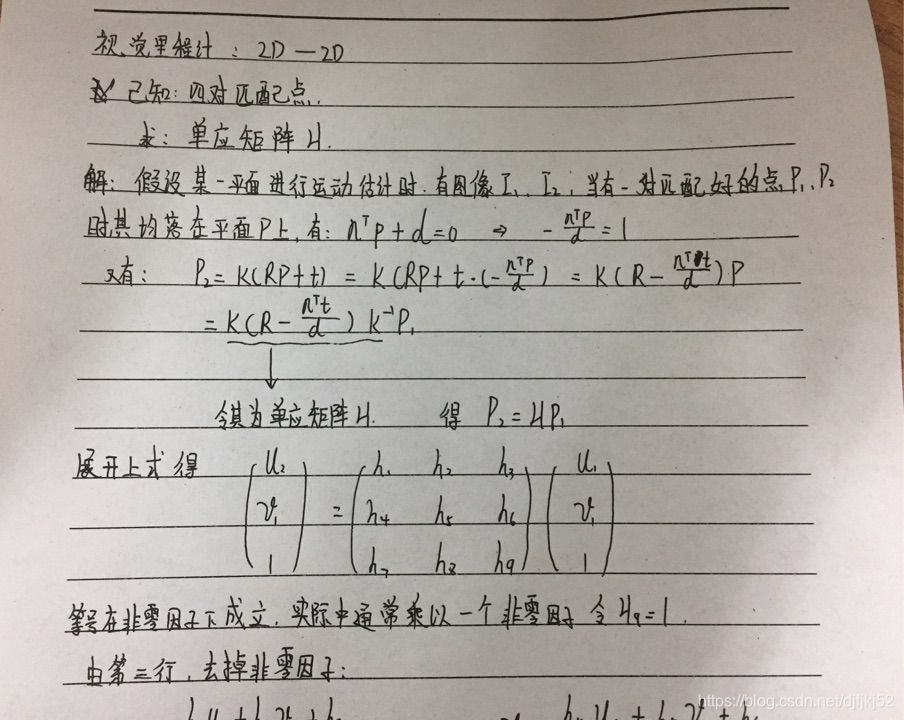 视觉里程计：2D—2D
已知：四对匹配点.
求：单应矩阵H.
解：假设某一平面进行运动估计时.有图像I₁、I₂，当有一对匹配好的点P₁、P₂
时其均落在平面P上，有：nᵀP+d=0 ⇒ -nᵀP/d=1
又有： P₂=K(RP+t) = K(RP+t·(-nᵀP/d) = K(R-nᵀt/d)P
=K(R-nᵀt/d)K⁻¹P₁
令其为单应矩阵H. 得 P₂=HP₁
展开上式得 (u₂ v₁ 1) = (h₁ h₂ h₃ h₄ h₅ h₆ h₇ h₈ h₉) (u₁ v₁ 1)
等号在非零因子下成立.实际中通常乘以一个非零因子令H₉=1.
由第三行，去掉非零因子：
https://blog.csdn.net/djfjkj52